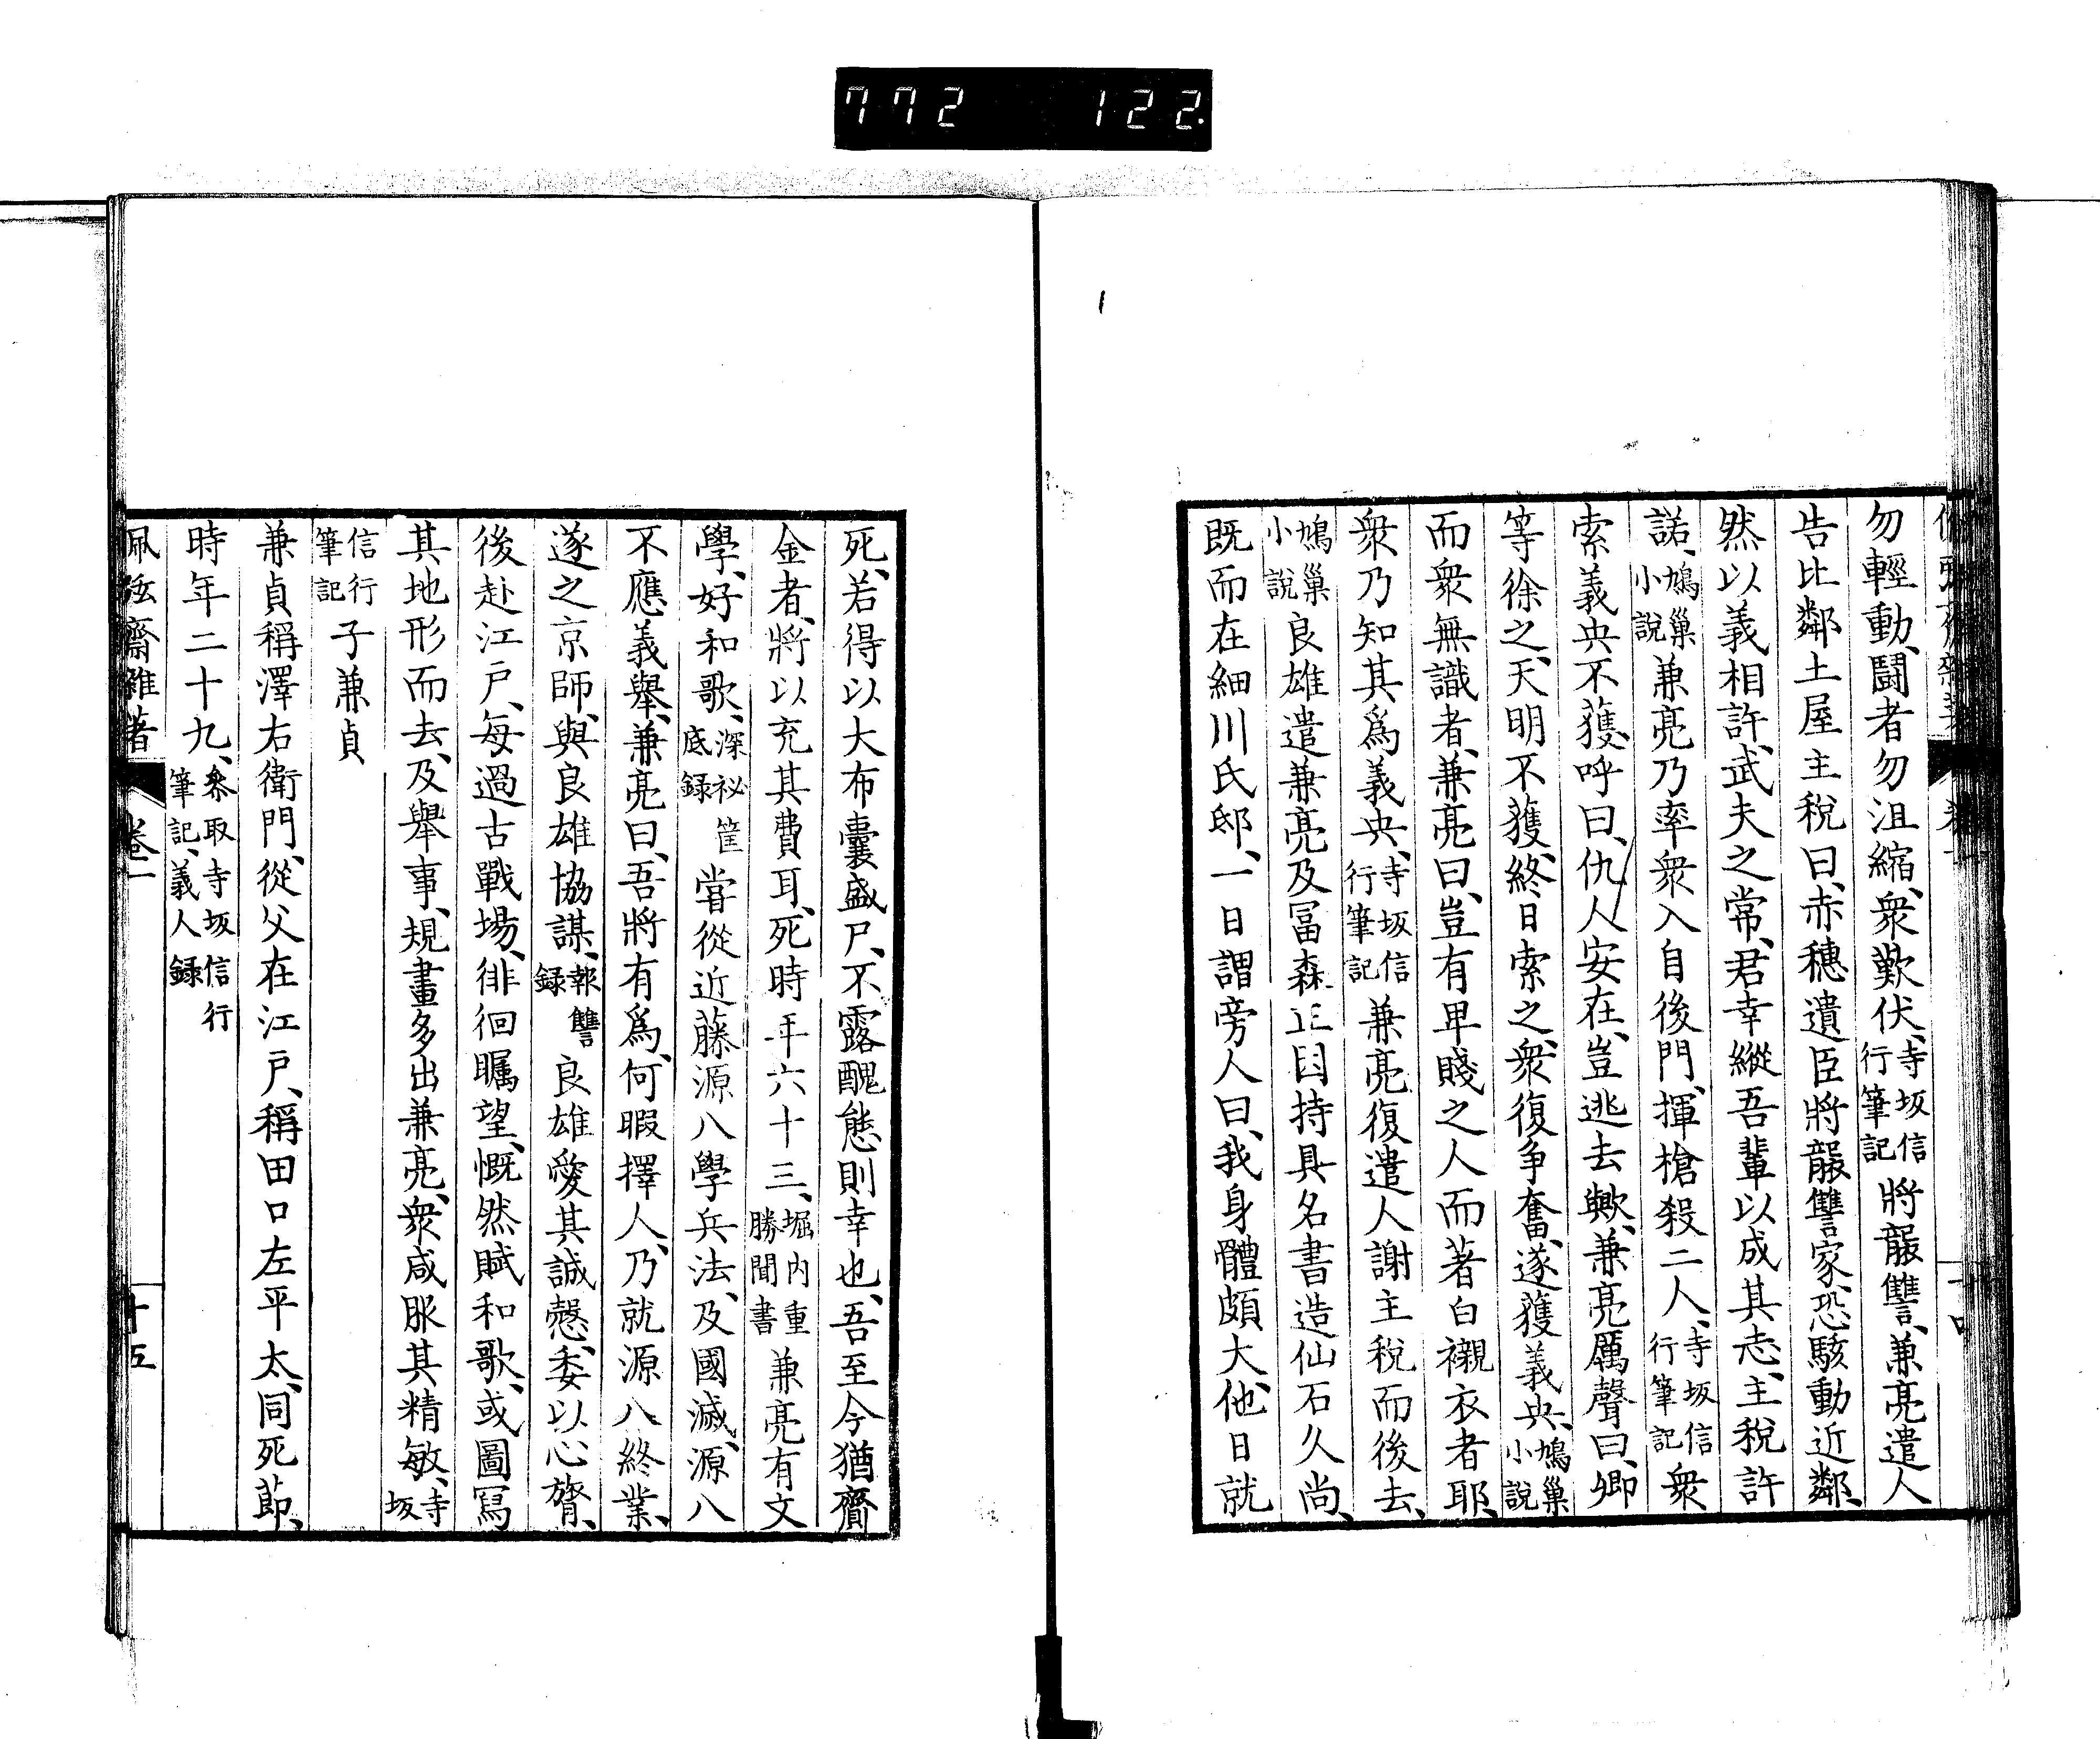 772 122
勿輕動、鬪者勿沮縮、衆歎伏、寺坂信行筆記將報讐、兼亮遣人
告比鄰土屋主稅曰、赤穗遺臣將報讐家、恐駭動近鄰、
然以義相許、武夫之常、君幸縱吾輩以成其志、主稅許
諾、鳩巢小說兼亮乃率衆入自後門、揮槍殺二人、寺坂信行筆記衆
索義央不獲、呼曰、仇人安在、豈逃去歟、兼亮厲聲曰、卿
等徐之、天明不獲、終日索之、衆復爭奮、遂獲義央、鳩巢小說
而衆無識者、兼亮曰、豈有卑賤之人而著白襯衣者耶、
衆乃知其爲義央、寺坂信行筆記兼亮復遣人謝主稅而後去、
鳩巢小說良雄遣兼亮及冨森正因持具名書造仙石久尚、
既而在細川氏邸、一日謂旁人曰、我身體頗大、他日就
死、若得以大布囊盛尸、不露醜態則幸也、吾至今猶齎
金者、將以充其費耳、死時年六十三、堀内重勝聞書兼亮有文
學、好和歌、深祕筐底録嘗從近藤源八學兵法、及國滅、源八
不應義舉、兼亮曰、吾將有爲、何暇擇人、乃就源八終業、
遂之京師、與良雄協謀、報讐録良雄愛其誠愨、委以心膂、
後赴江戶、每過古戰場、徘徊矚望、慨然賦和歌、或圖冩
其地形而去、及舉事、規畫多出兼亮、衆咸服其精敏、寺坂
信行筆記子兼貞
兼貞稱澤右衛門、從父在江戶、稱田口左平太、同死節、
時年二十九、參取寺坂信行筆記、義人録
齋雜著 卷二 十五